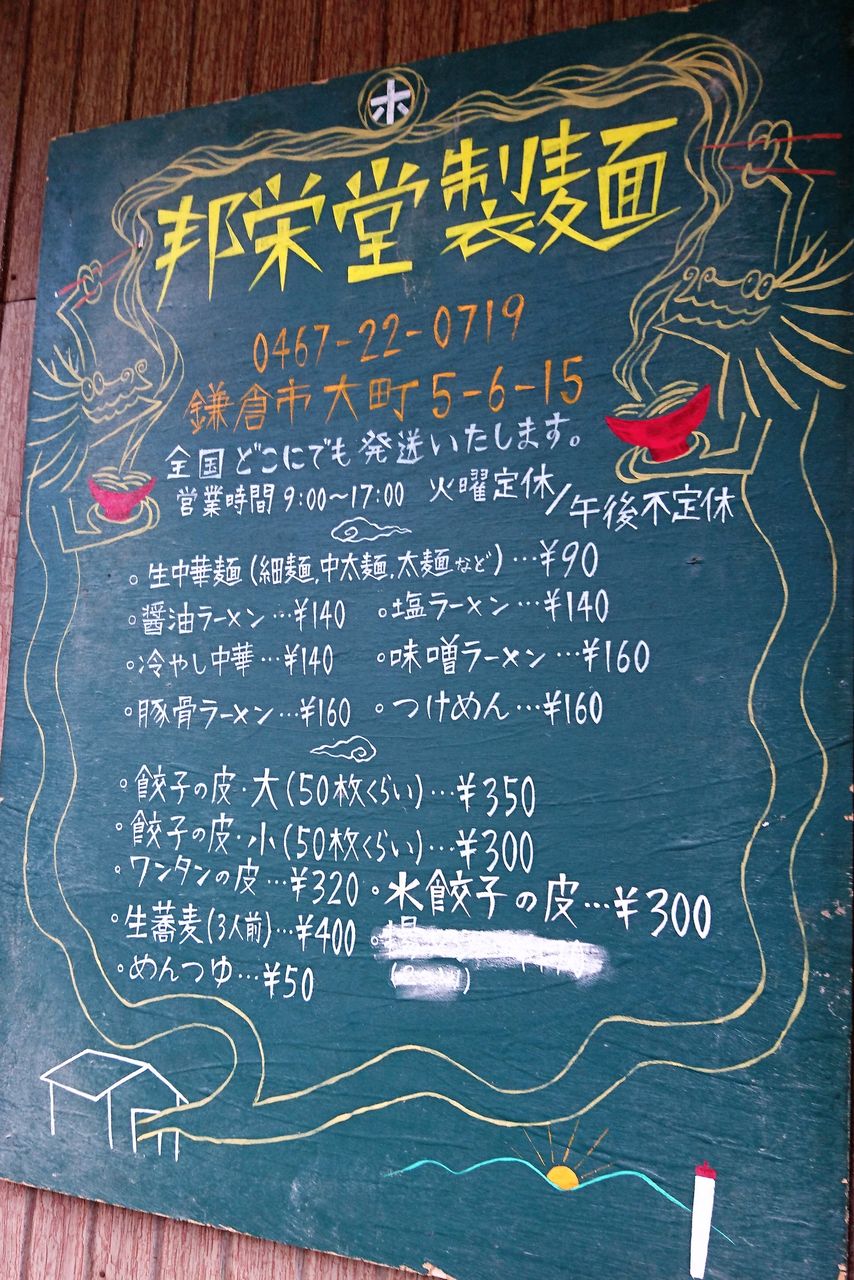 ホ
邦栄堂製麺
0467-22-0719
鎌倉市大町5-6-15
全国どこにでも発送いたします。
営業時間 9:00~17:00 火曜定休/午後不定休
。生中華麺(細麺,中太麺,太麺など)…¥90
。醤油ラーメン…¥140 。塩ラーメン…¥140
。冷やし中華…¥140 。味噌ラーメン…¥160
。豚骨ラーメン…¥160 。つけめん…¥160
。餃子の皮・大(50枚くらい)…¥350
。餃子の皮・小(50枚くらい)…¥300
。ワンタンの皮…¥320 。水餃子の皮…¥300
。生蕎麦(3人前)…¥400
。めんつゆ…¥50